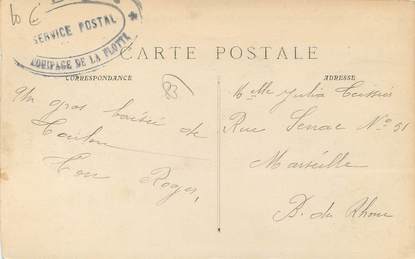 10 €
SERVICE POSTAL
EQUIPAGE DE LA FLOTTE
CARTE POSTALE
CORRESPONDANCE
ADRESSE
83
Un gros baiser de
Toulon
Ton Roger,
Melle Julia
Rue Senac No 31
Marseille
B. du Rhone